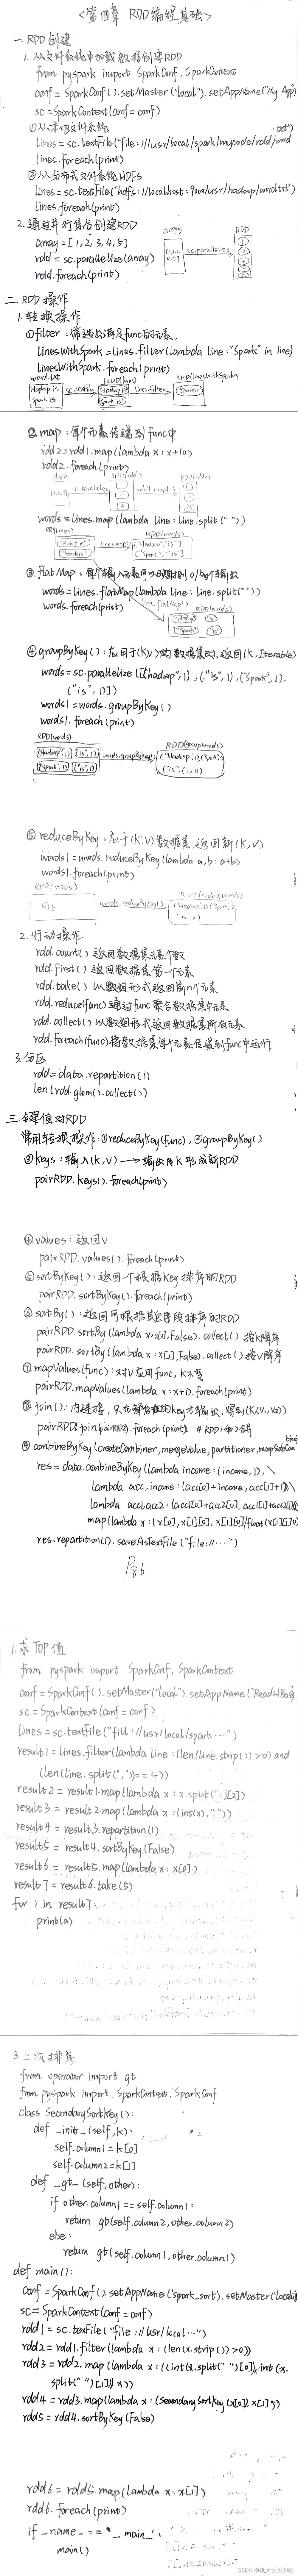 <第四章 RDD编程基础>
一. RDD创建
1. 从文件系统中加载数据创建RDD
from pyspark import SparkConf, SparkContext
conf = SparkConf().setMaster("local").setAppName("My App")
sc = SparkContext(conf = conf)
①从本地文件系统
lines = sc.textFile("file:///usr/local/spark/mycode/rdd/word.txt")
lines.foreach(print)
②从分布式文件系统HDFS
lines = sc.textFile("hdfs://localhost:9000/usr/hadoop/word.txt")
lines.foreach(print)
2. 通过并行集合创建RDD
array = [1, 2, 3, 4, 5]
rdd = sc.parallelize(array)
rdd.foreach(print)
array
sc.parallelize
RDD
二. RDD操作
1. 转换操作
①filter: 筛选出满足func的元素.
linesWithSpark = lines.filter(lambda line: "Spark" in line)
linesWithSpark.foreach(print)
word.txt
RDD(lines)
RDD(linesWithSpark)
Hadoop is
Spark is
sc.textFile
"Hadoop is"
"Spark is"
lines.filter
"Spark is"
②map: 每个元素传递到func中
rdd2 = rdd1.map(lambda x: x+10)
rdd2.foreach(print)
words = lines.map(lambda line: line.split(" "))
RDD(lines)
RDD(words)
"Hadoop is"
"Spark is"
lines.map()
["Hadoop", "is"]
["Spark", "is"]
③flatMap: 每个输入元素可以映射到0/多个输出
words = lines.flatMap(lambda line: line.split(" "))
words.foreach(print)
line.flatMap()
RDD(words)
"Hadoop"
"is"
"Spark"
"is"
④groupByKey(): 应用于(K,V)的数据集时, 返回(K, Iterable)
words = sc.parallelize([("hadoop", 1), ("is", 1), ("spark", 1),
("is", 1)])
words1 = words.groupByKey()
words1.foreach(print)
RDD(words)
("Hadoop", 1) ("is", 1)
("Spark", 1) ("is", 1)
words.groupByKey()
RDD(groupwords)
("is", (1, 1))
⑤reduceByKey: 应于(K,V)数据集, 返回新(K,V)
words1 = words.reduceByKey(lambda a, b: a+b)
words1.foreach(print)
RDD(words)
同上
words.reduceByKey()
RDD(reducewords)
("is", 2)
2. 行动操作.
rdd.count() 返回数据集元素个数
rdd.first() 返回数据集第一个元素
rdd.take() 以数组形式返回前n个元素
rdd.reduce(func) 通过func聚合数据集中元素
rdd.collect() 以数组形式返回数据集所有元素
rdd.foreach(func) 将数据集每个元素传递到func中运行
3. 分区
rdd = data.repartition(1)
len(rdd.glom().collect())
三. 键值对RDD
常用转换操作: ①reduceByKey(func), ②groupByKey()
③keys: 输入(K,V) → 输出K形成新RDD
pairRDD.keys().foreach(print)
④values: 返回V
pairRDD.values().foreach(print)
⑤sortByKey(): 返回一个根据Key排序的RDD
pairRDD.sortByKey().foreach(print)
⑥sortBy(): 返回可根据其它字段排序的RDD
pairRDD.sortBy(lambda x: x[0], False).collect() 按K降序
pairRDD.sortBy(lambda x: x[1], False).collect() 按V降序
⑦mapValues(func): 对V应用func, K不变
pairRDD.mapValues(lambda x: x+1).foreach(print)
⑧join(): 内连接, 只有都存在的key才输出, 得到(K,(V1,V2))
⑨combineByKey(createCombiner, mergeValue, partitioner, mapSideCom
bine)
res = data.combineByKey(lambda income: (income, 1), \
lambda acc, income: (acc[0]+income, acc[1]+1), \
lambda acc1, acc2: (acc1[0]+acc2[0], acc1[1]+acc2[1])).
map(lambda x: (x[0], x[1][0], x[1][0]/float(x[1][1])))
res.repartition(1).saveAsTextFile("file://…")
P86
1. 求TOP值
from pyspark import SparkConf, SparkContext
conf = SparkConf().setMaster("local").setAppName("ReadHBase")
sc = SparkContext(conf = conf)
lines = sc.textFile("fill://usr/local/spark …")
result1 = lines.filter(lambda line: (len(line.strip()) > 0) and
(len(line.split(",")) == 4))
result2 = result1.map(lambda x: x.split(",")[2])
result3 = result2.map(lambda x: (int(x), ""))
result4 = result3.repartition(1)
result5 = result4.sortByKey(False)
result6 = result5.map(lambda x: x[0])
result7 = result6.take(5)
for i in result7:
print(a)
3. 二次排序
from operator import gt
from pyspark import SparkContext, SparkConf
class SecondarySortKey():
def _init_(self, k):
self.column1 = k[0]
self.column2 = k[1]
def _gt_(self, other):
if other.column1 == self.column1:
return gt(self.column2, other.column2)
else:
return gt(self.column1, other.column1)
def main():
conf = SparkConf().setAppName('spark_sort').setMaster('local')
sc = SparkContext(conf = conf)
rdd1 = sc.texFile("file://usr/local…")
rdd2 = rdd1.filter(lambda x: (len(x.strip()) > 0))
rdd3 = rdd2.map(lambda x: ((int(x.split(" ")[0]), int(x.
split(" ")[1])), x))
rdd4 = rdd3.map(lambda x: (SecondarySortKey(x[0]), x[1]))
rdd5 = rdd4.sortByKey(False)
rdd6 = rdd5.map(lambda x: x[1])
rdd6.foreach(print)
if _name_ == '_main_':
main()